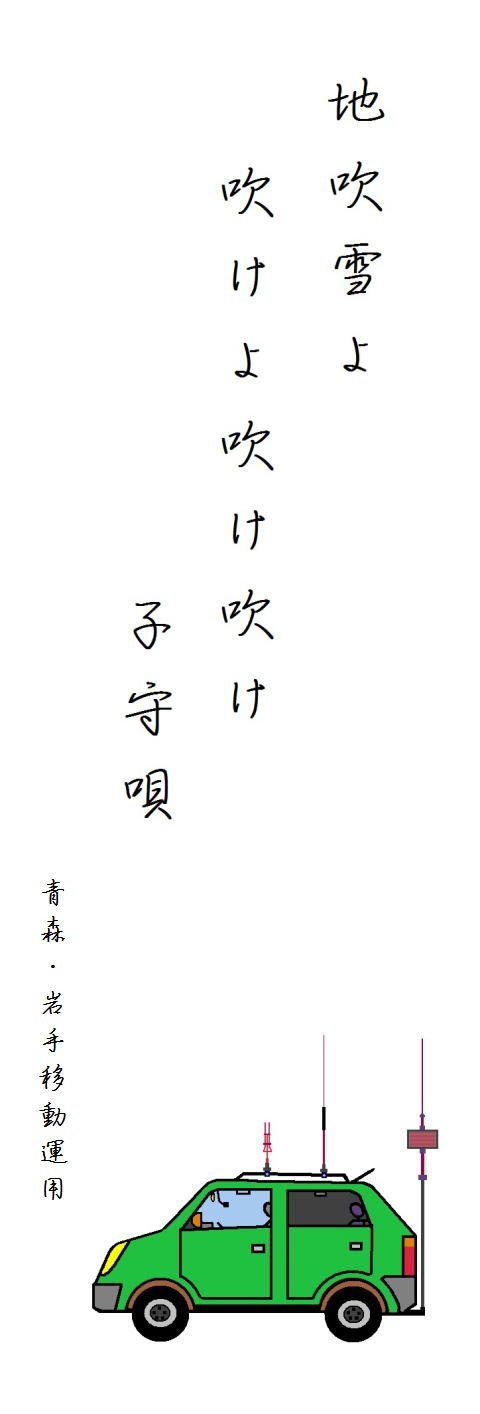 地吹雪よ
吹けよ吹け吹け
子守唄
青森・岩手移動運用